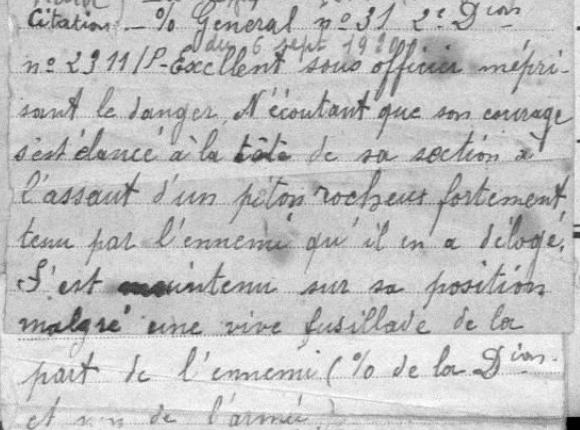 Citation - % Général nº 31 2e Dion
du 6 sept 1920
nº 2311/P - Excllent sous officier mépri-
sant le danger, N'écoutant que son courage
s'est élancé à la tête de sa section à
l'assaut d'un piton rocheux fortement
tenu par l'ennemi qu'il en a délogé.
S'est maintenu sur sa position
malgré une vive fusillade de la
part de l'ennemi (% de la Dion.
et non de l'armée)